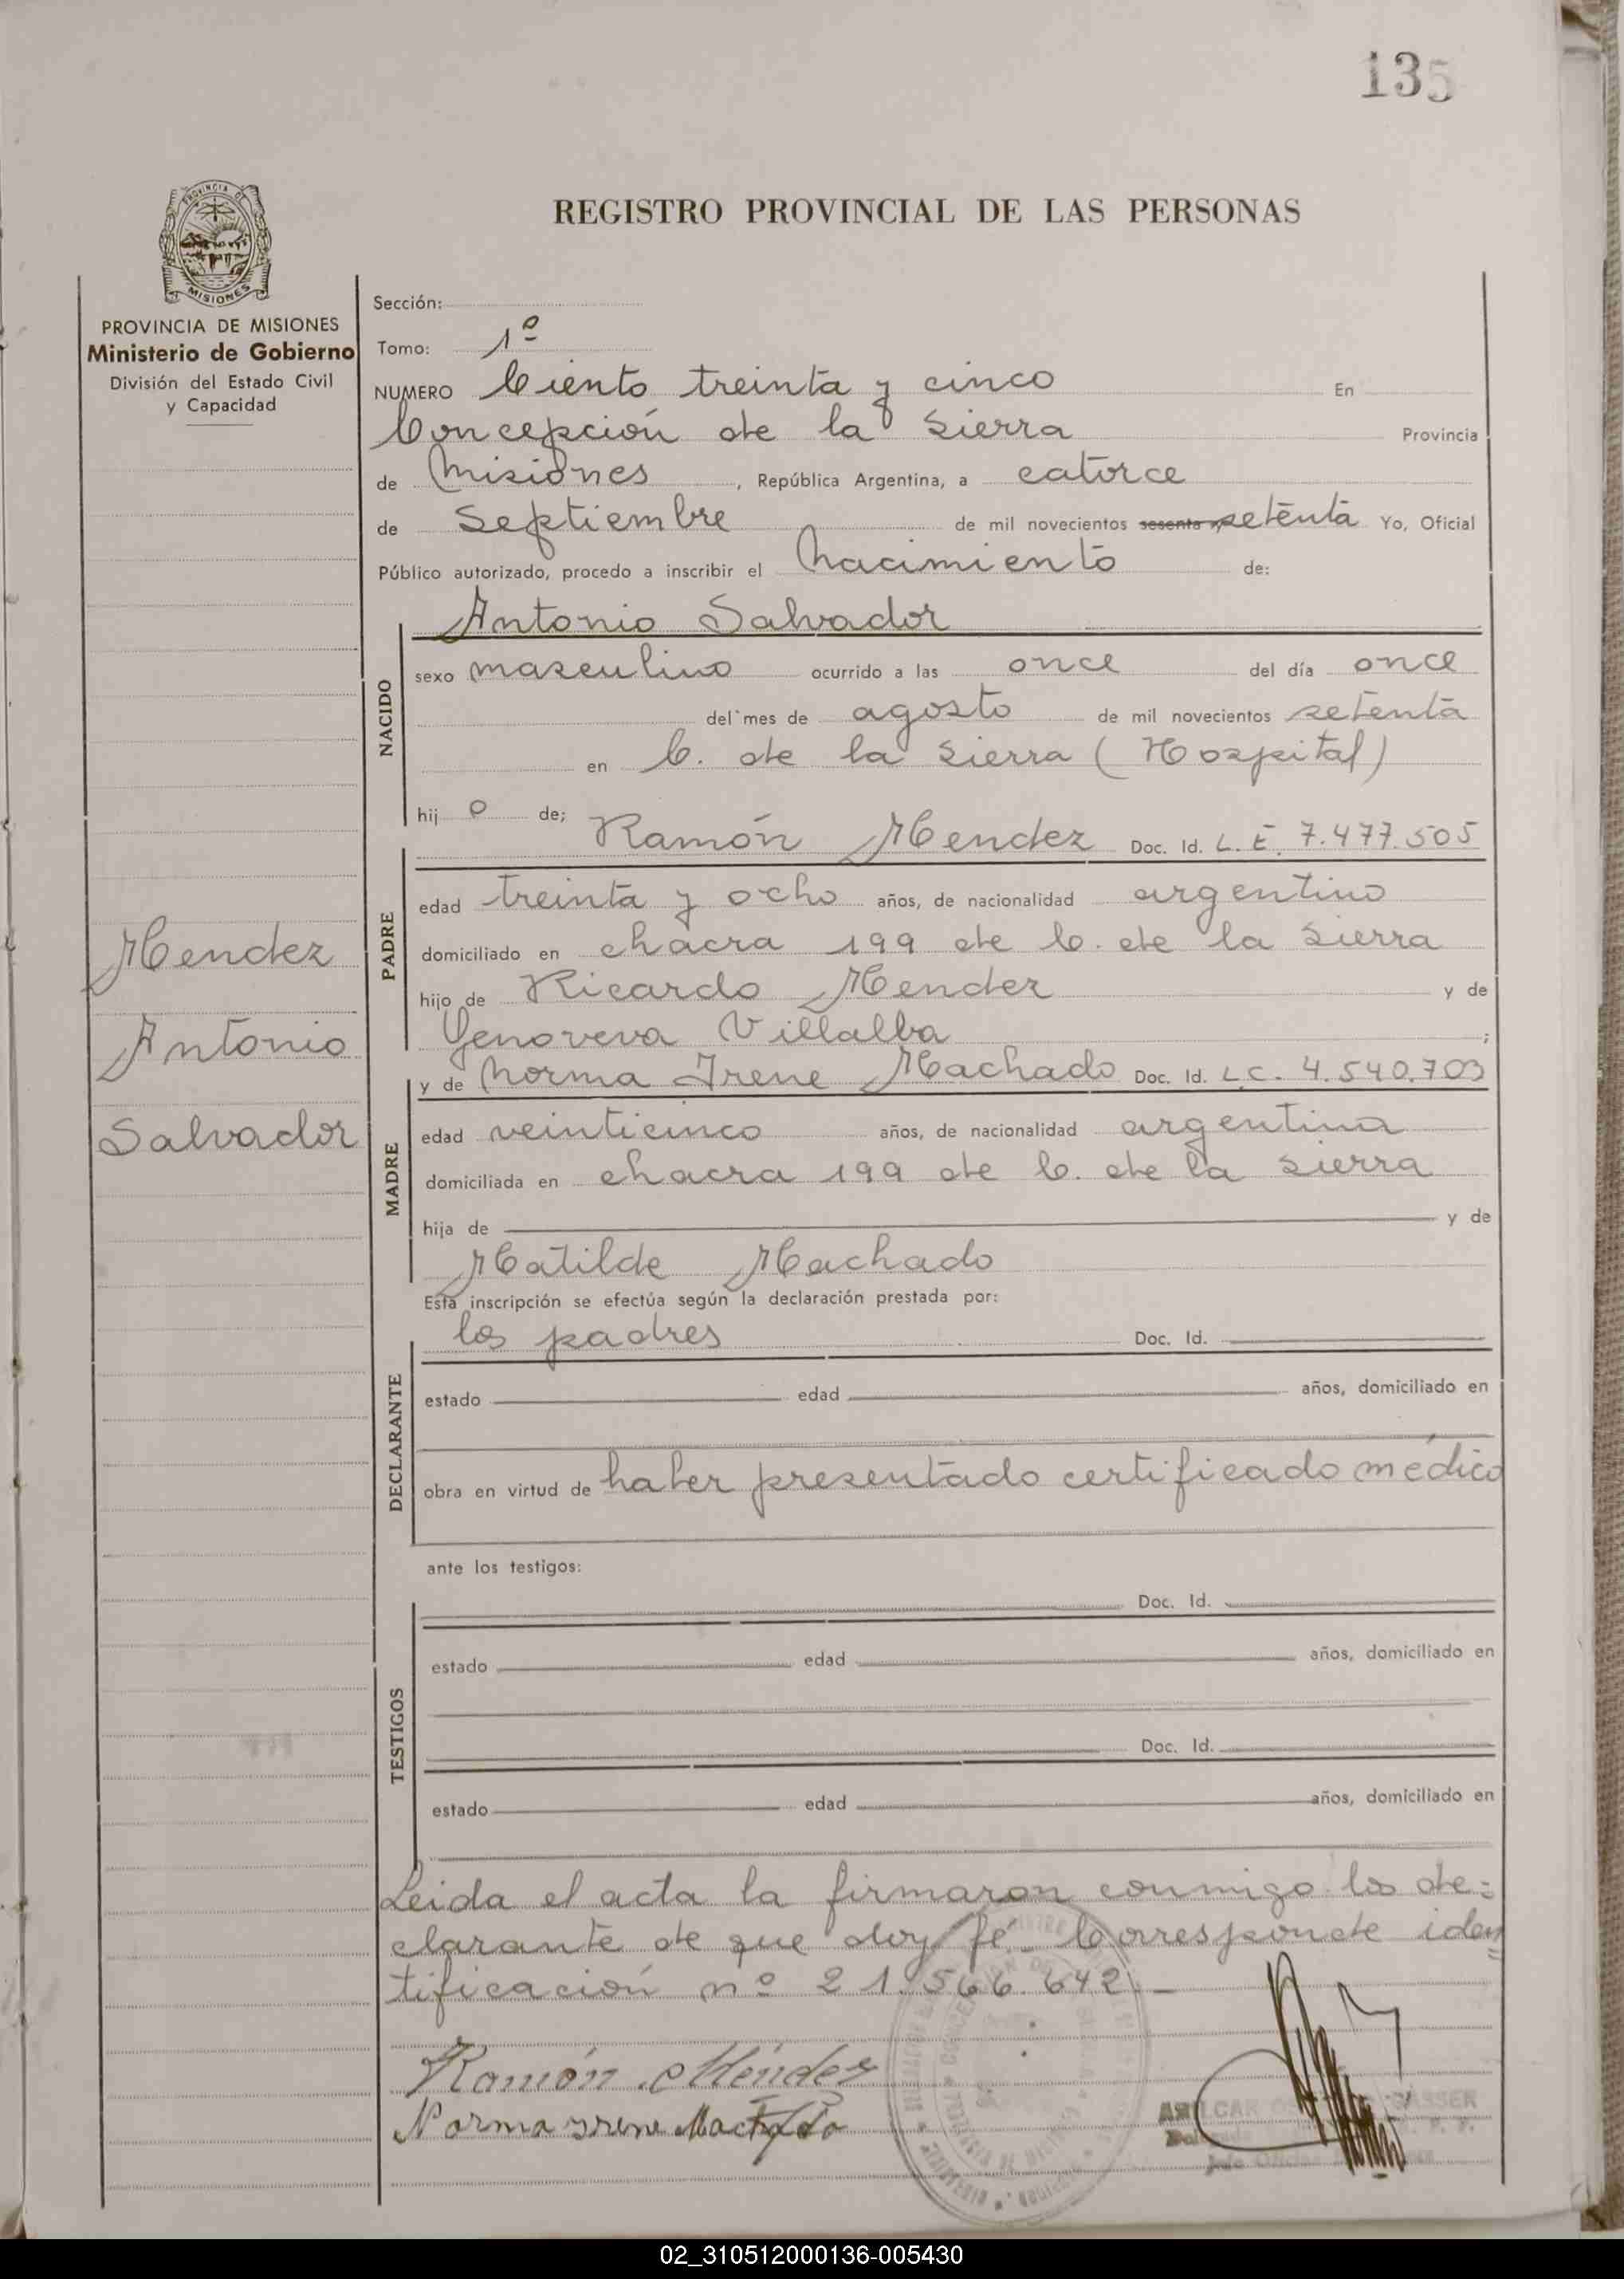 135
PROVINCIA DE
MISIONES
REGISTRO PROVINCIAL DE LAS PERSONAS
PROVINCIA DE MISIONES
Ministerio de Gobierno
División del Estado Civil
y Capacidad
Sección:
Tomo: 1º
NUMERO Ciento treinta y cinco En
Concepción de la Sierra Provincia
de Misiones, República Argentina, a catorce
de Septiembre de mil novecientos sesenta y setenta Yo, Oficial
Público autorizado, procedo a inscribir el Nacimiento de:
Antonio Salvador
NACIDO
sexo masculino ocurrido a las once del día once
del mes de agosto de mil novecientos setenta
en C. de la Sierra (Hospital)
hij o de;
Ramón Mendez Doc. Id. L. E. 7.477.505
PADRE
edad treinta y ocho años, de nacionalidad argentino
domiciliado en chacra 199 de C. de la Sierra
hijo de Ricardo Mendez y de
Genoveva Villalba ;
y de Norma Irene Machado Doc. Id. L.C. 4.540.703
MADRE
edad veinticinco años, de nacionalidad argentina
domiciliada en chacra 199 de C. de la Sierra
hija de y de
Matilde Machado
Mendez
Antonio
Salvador
Esta inscripción se efectúa según la declaración prestada por:
los padres Doc. Id.
DECLARANTE
estado edad años, domiciliado en
obra en virtud de haber presentado certificado médico
ante los testigos:
Doc. Id.
TESTIGOS
estado edad años, domiciliado en
Doc. Id.
estado edad años, domiciliado en
Leida el acta la firmaron conmigo los de-
clarante de que doy fé. Corresponde iden
tificación nº 21.566.642.-
Ramón Méndez
Norma Irene Machado
02_310512000136-005430